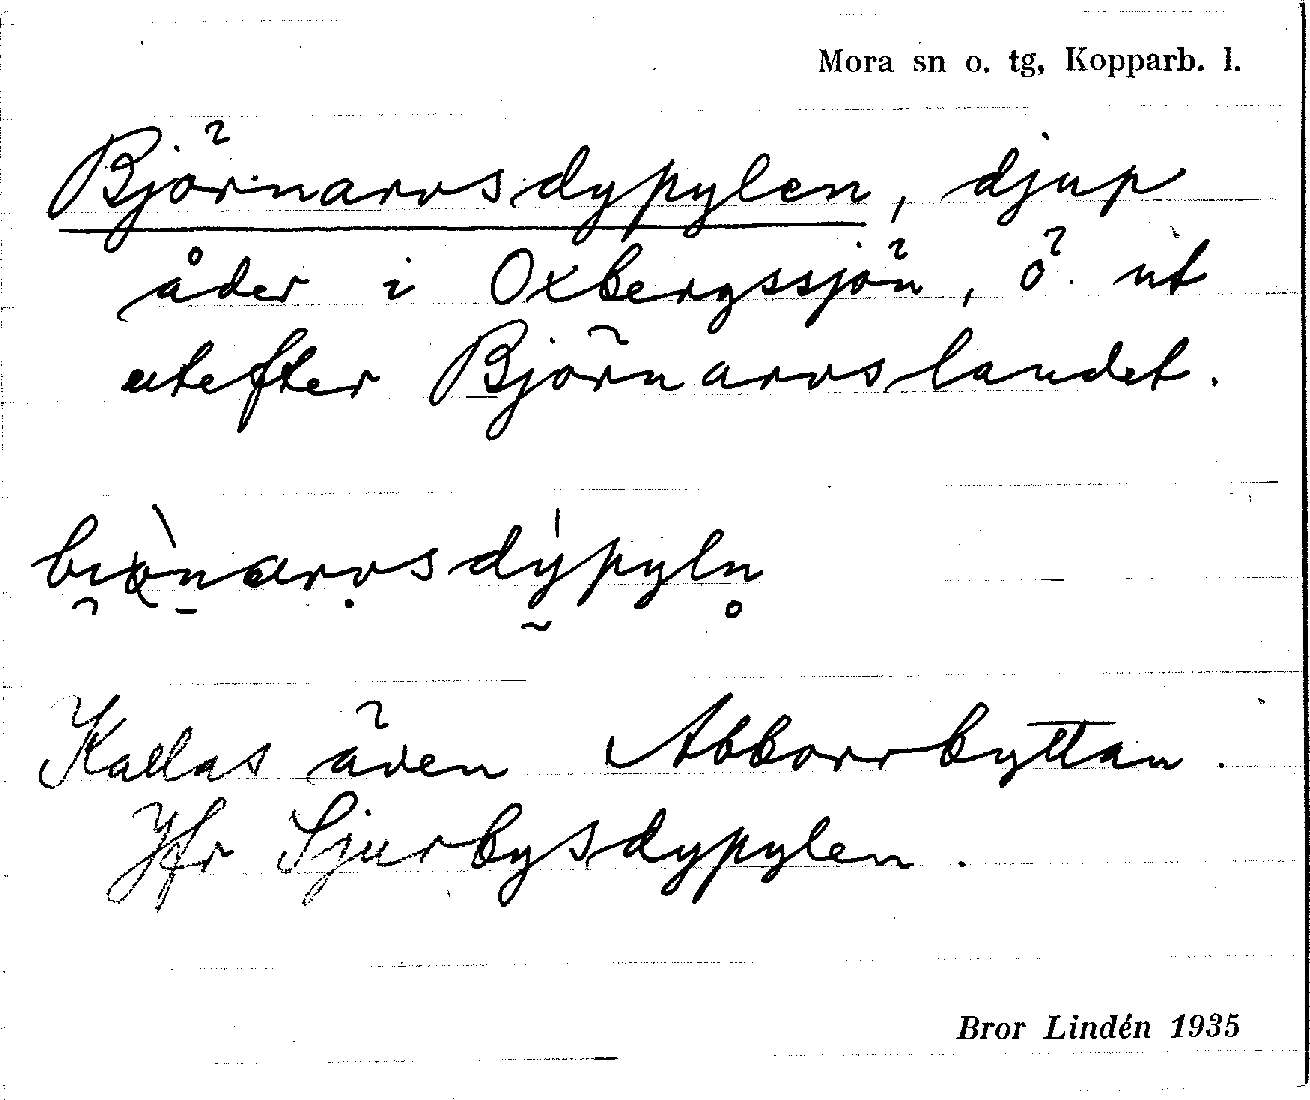 Mora sn o. tg, Kopparb. l.
Björnarvsdypylen, djup
åder i Oxbergssjön, ö. ut
utefter Björnarvslandet.
Kallas även Abborrbyttan.
Jfr Sjurbysdypylen.
Bror Lindén 1935